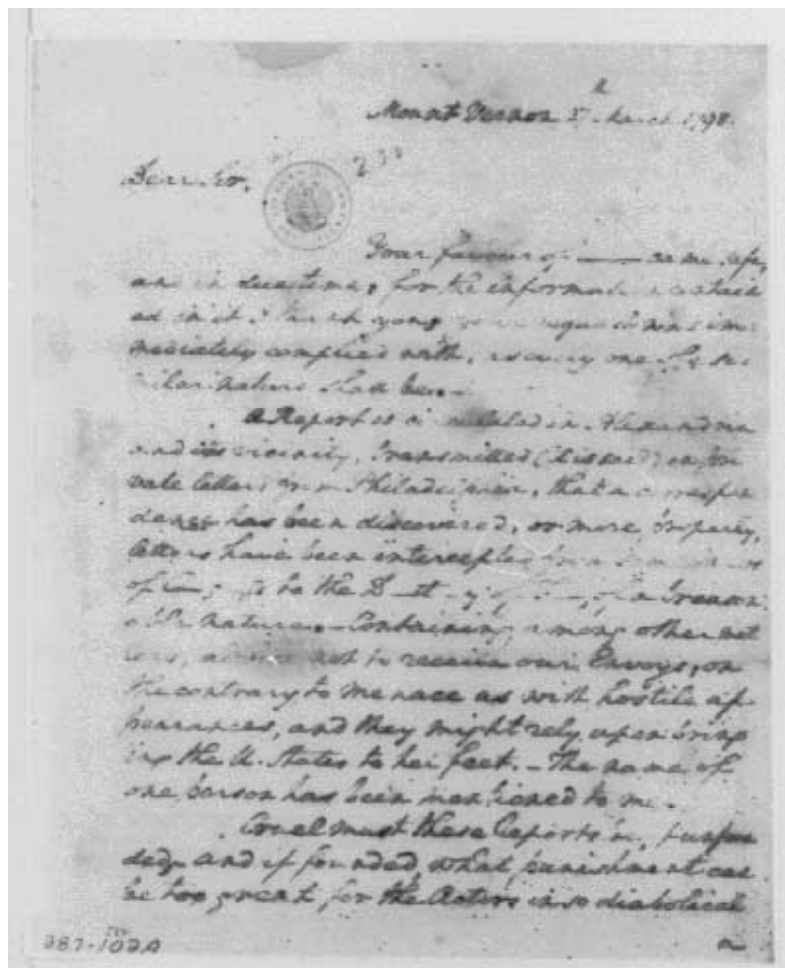 Mount Vernon 27th March 1798.
Dear Sir,
Your favour of me safe,
and in due time, for the information contain
ed in it I thank you, your request was im
mediately complied with, as every one of a si
milar nature shall be.
A Report is circulated in Alexandria
and its vicinity, transmitted (it is said) in pri
vate letters from Philadelphia, that a correspon
dence has been discovered, or more properly,
letters have been intercepted from
of to the D_ct_y of of a treason
able nature. Containing, among other mat
ters, advice not to receive our Envoys; on
the contrary to menace us with hostile ap
pearances, and they might rely upon bring
ing the U. States to her feet. The name of
one person has been mentioned to me.
Cruel must these Reports be, if unfoun
ded; and if founded, what punishment can
be too great for the Actors in so diabolical
a